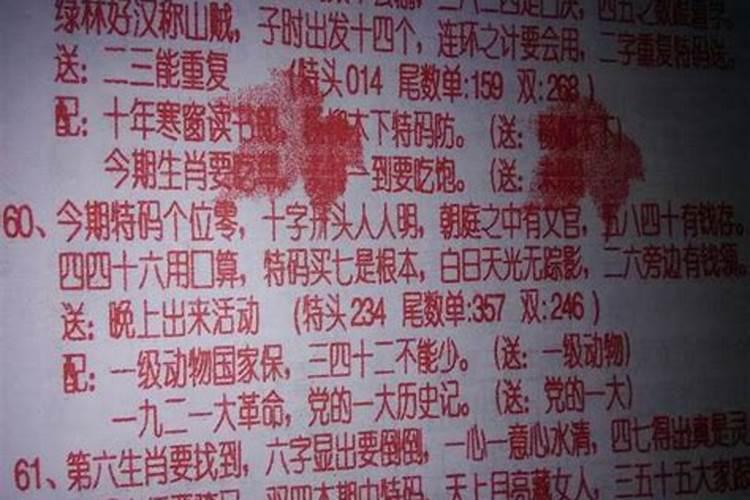 绿林好汉称山贼，子时出发十四个，连环之计要会用，二字重复特码送。
送：二三能重复 （特头014 尾数单:159 双:268）
配：十年寒窗读书 木下特码防。（送：
今期生肖要 一到要吃饱。（送：
60、今期特码个位零，十字拼头人人明，朝庭之中有文官，五八四十有钱存。
四四十六用口算，特码买七是根本，白日天光无踪影，二六旁边有钱领。
送：晚上出来活动 （特头234 尾数单:357 双:246）
配：一级动物国家保，三四十二不能少。（送：一级动物）
一九二一大革命，党的一大历史记。（送：党的一大）
61、第六生肖要找到，六字显出要倒倒，一心一意心水清，四七得出真是灵
双四本期中特码，天上月高藏女人，三五十五大家